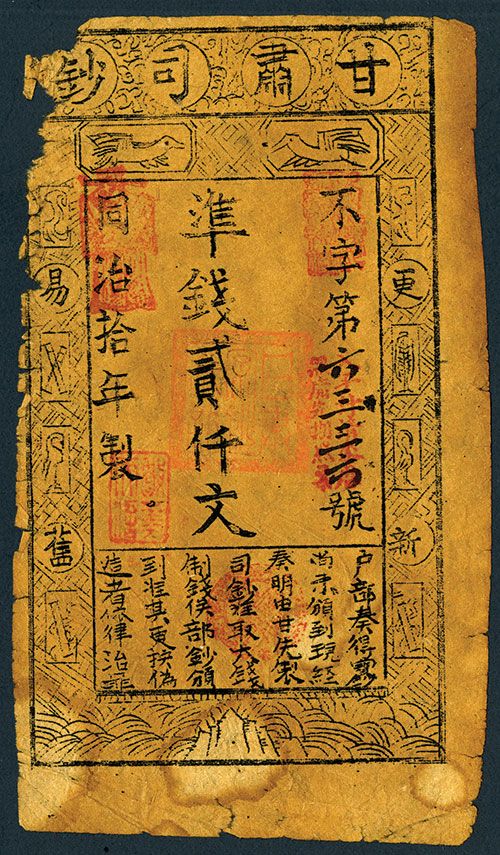 甘肅司鈔
不字第六三三六號
準錢貳仟文
同治拾年製
更新
易舊
户部奏得寶
尚未頒到現經
奏明由甘先製
司鈔準取大錢
制錢俟部鈔頒
到准其更換偽
造者依律治罪